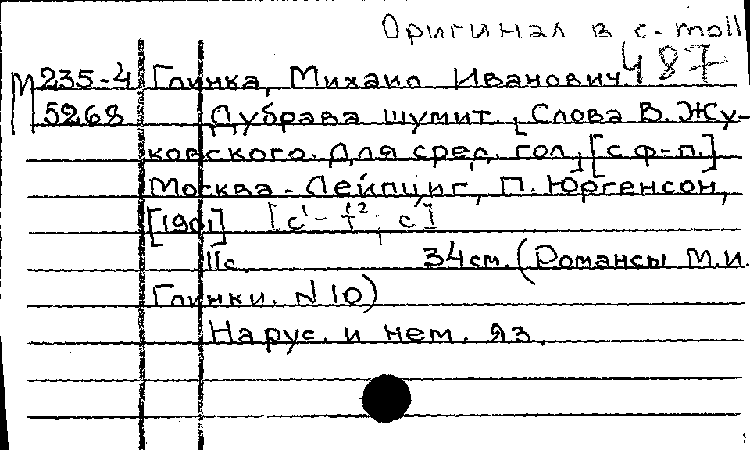 Оригинал в c-moll
487
М 235-4 Глинка, Михаил Иванович.
5268 Дубрава шумит. Слова В. Жу-
ковского. Для сред. гол. [с ф-п.]
Москва - Лейпциг, П. Юргенсон,
[1901] [c¹ - f²; c]
11с. 34см. (Романсы М.И.
Глинки. N 10)
На рус. и нем. яз.